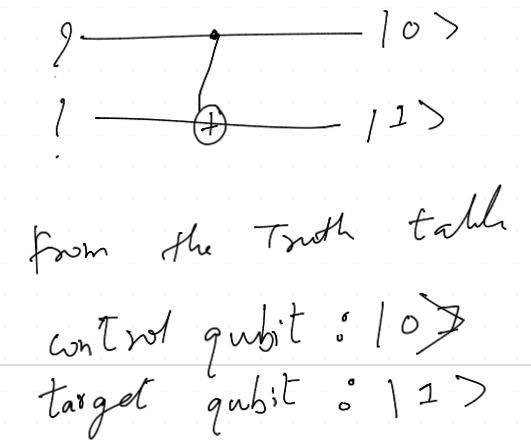 ? |0>
? |1>
from the Truth table
control qubit : |0>
target qubit : |1>